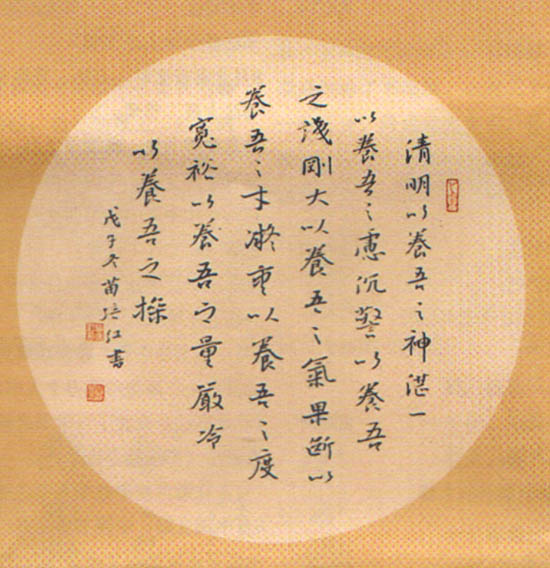 清明以養吾之神湛一
以養吾之慮沉警以養吾
之識剛大以養吾之氣果斷以
養吾之才凝重以養吾之度
寬裕以養吾之量嚴冷
以養吾之操
戊子冬苗培红書